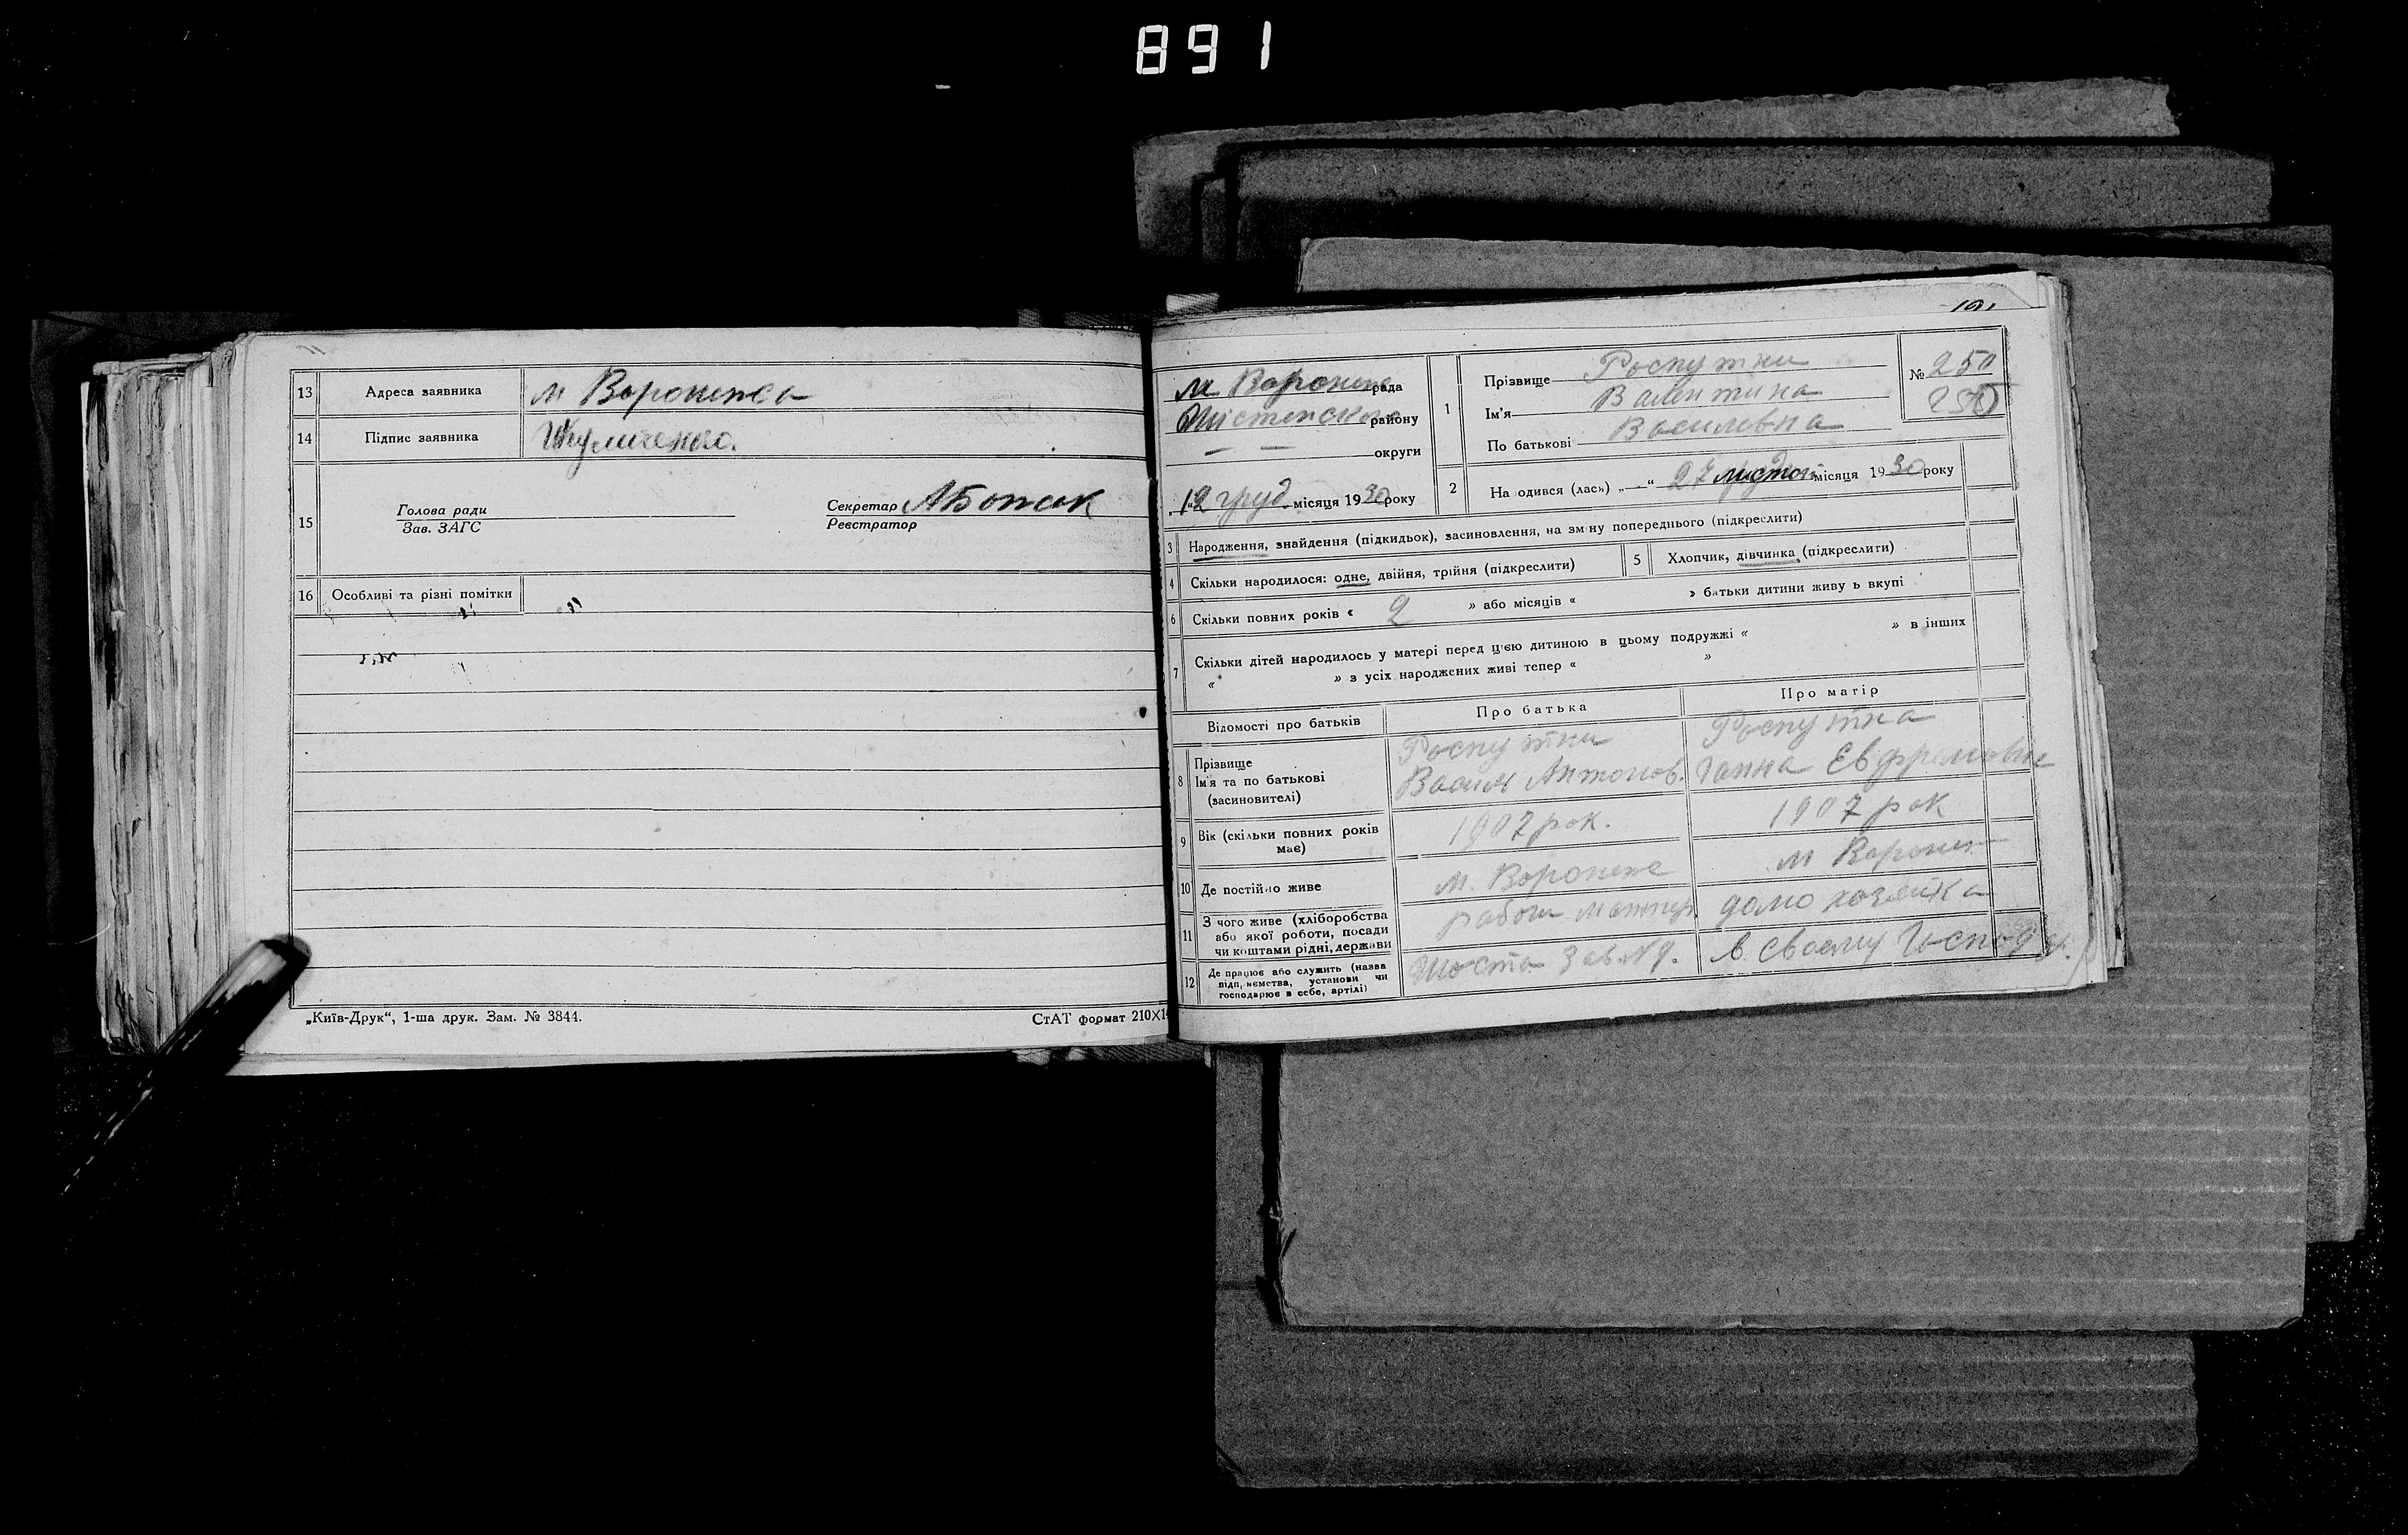 891
13 Адреса заявника м Воронежа
14 Підпис заявника
15 Голова ради
Зав. ЗАГС
Секретар АБожок
Реєстратор
16 Особливі та різні помітки
„Київ-Друк“, 1-ша друк. Зам. № 3844.
СтАТ формат 210×14
м. Вороніж рада
району
округи
12 груд місяця 1930 року
1 Прізвище
Ім'я Валентина
По батькові Василевна
№ 250
250
2 На одився (лась) „—“ 27 листоп місяця 1930 року
3 Народження, знайдення (підкидьок), засиновлення, на зміну попереднього (підкреслити)
4 Скільки народилося: одне, двійня, трійня (підкреслити)
5 Хлопчик, дівчинка (підкреслити)
6 Скільки повних років « 2 » або місяців « » батьки дитини живу ь вкупі
7 Скільки дітей народилось у матері перед цією дитиною в цьому подружжі « » в інших
« » з усіх народжених живі тепер « »
Відомості про батьків Про батька Про матір
8 Прізвище
Ім'я та по батькові Василь Антонов. Ганна
(засновителі)
9 Вік (скільки повних років має) 1907 рок. 1907 рок
10 Де постійно живе м. Вороніж м Вороніж
11 З чого живе (хліборобства або якої роботи, посади чи коштами рідні, держави домо хозяйка
12 Де працює або служить (назва підприємства, установи чи господарює в себе, артілі) Шостка Зав. № 9. в своєму